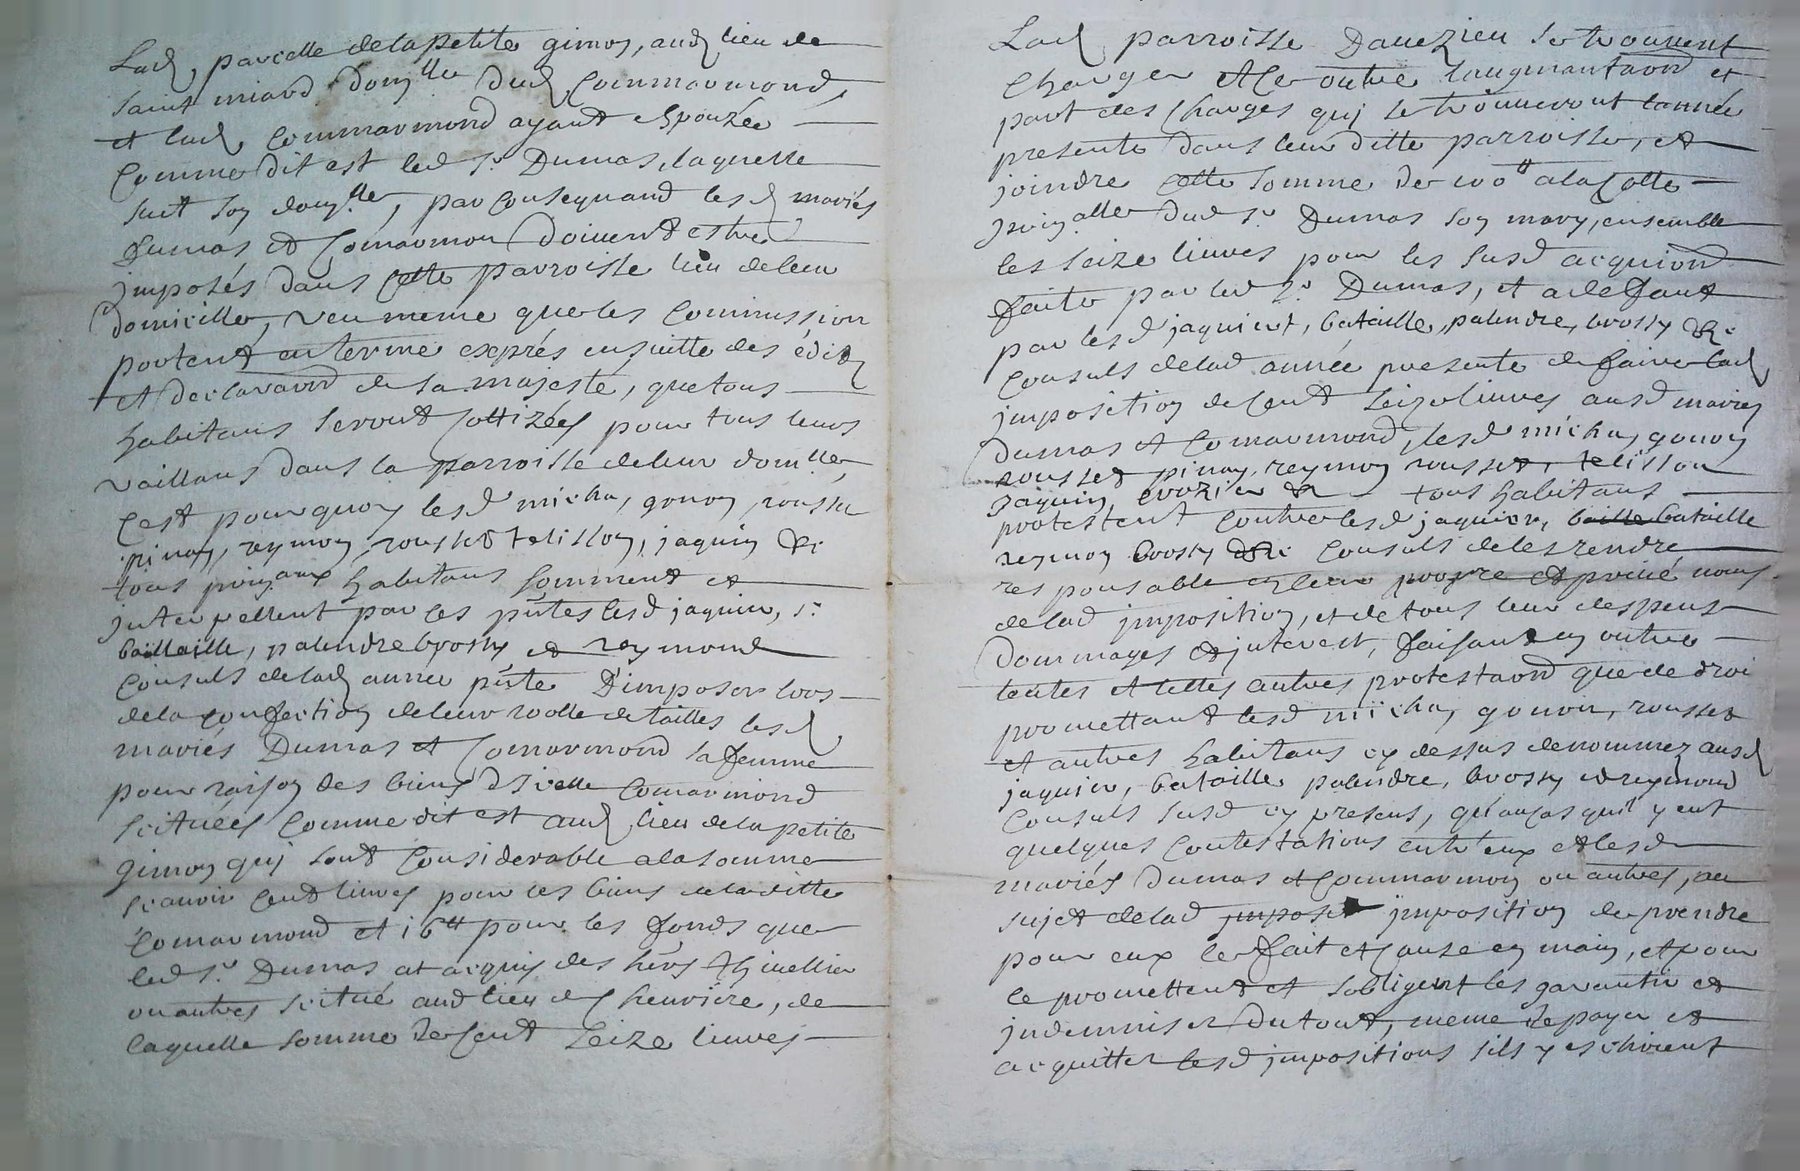 Lad parcelle de la petite gimon, aud lieu de
saint miard domlle dud Commarmond,
et lad Commarmond ayant Espouzée
Comme dit est led Sr Dumas, laquelle
suit son domlle, par Consequand lesd mariés
dumas et Comarmon doivent estre
jmposés dans Cette parroisse lieu de leur
domicille, veu meme que les Commission
portent en terme exprés ensuitte des édits
et declaraond de sa majesté, que tous
habitans seront Cottizées pour tous leurs
vaillans dans la parroisse de leur domlle,
C'est pourquoy lesd micha, gonon, rousse
pinay, reymon, rousset telisson, jaquin &c
tous prinaux habitans somment et
jnterpellent par les pntes lesd jaquier, Sr
battaille, palendre brossy et reymond
Consuls de lad annee pnte D'imposer lors
de la Confection de leur rolle de tailles lesd
mariés Dumas et Comarmond sa femme
pour raison des biens d'icelle Comarmond
scituées Comme dit est aud lieu de la petite
gimon quj sont Considerable a la somme
scavoir Cent livres pour les biens de la ditte
Comarmond et 16tt pour les fonds que
led Sr Dumas at acquis des hers thivellier
ou autres scitué aud lieu de Cheuriere, de
laquelle somme de Cent Seize livres
Lad parroisse Daveizieu se trouvent
Charger et Ce outre laugmantaond et
part des Charges quj se trouveront lannée
presente dans leur ditte parroisse, et
joindre Cette somme de 100tt a la Cotte
prinalle dud Sr Dumas son mary, ensemble
les seize livres pour les susd acquiond
faite par led Sr Dumas, et a deffaut
par lesd jaquiert, bataille, palendre, brossy &c
Consuls de lad année presente de faire lad
jmposition de Cent seize livres ausd mariés
Dumas et Comarmond, lesd micha, gonon
rousset pinay, reymon rousset, telisson
Jaquin crozier &c tous habitans
protestent Contre lesd jaquier, bataille
reymon brossy &c Consuls de les rendre
responsable en leur propre et privé noms
de lad jmposition, et de tous leur despens
dommages et jnterest, faisant en outre
toutes et telles autres protestaond que de droi
promettant lesd micha, gonon, rousset
et autres habitans cy dessus denommez ausd
jaquier, bataille palendre, brossy et reymond
Consuls susd cy presens, qu'au Cas quil y eut
quelques Contestations entr'eux et lesd
mariés Dumas et Commarmon ou autres, au
sujet de lad jmposit jmposition de prendre
pour eux le fait et Cause en main, et pour
Ce promettent et sobligent les garantir et
jndemniser du tout, meme de payer et
acquitter lesd jmpositions sils y eschoient